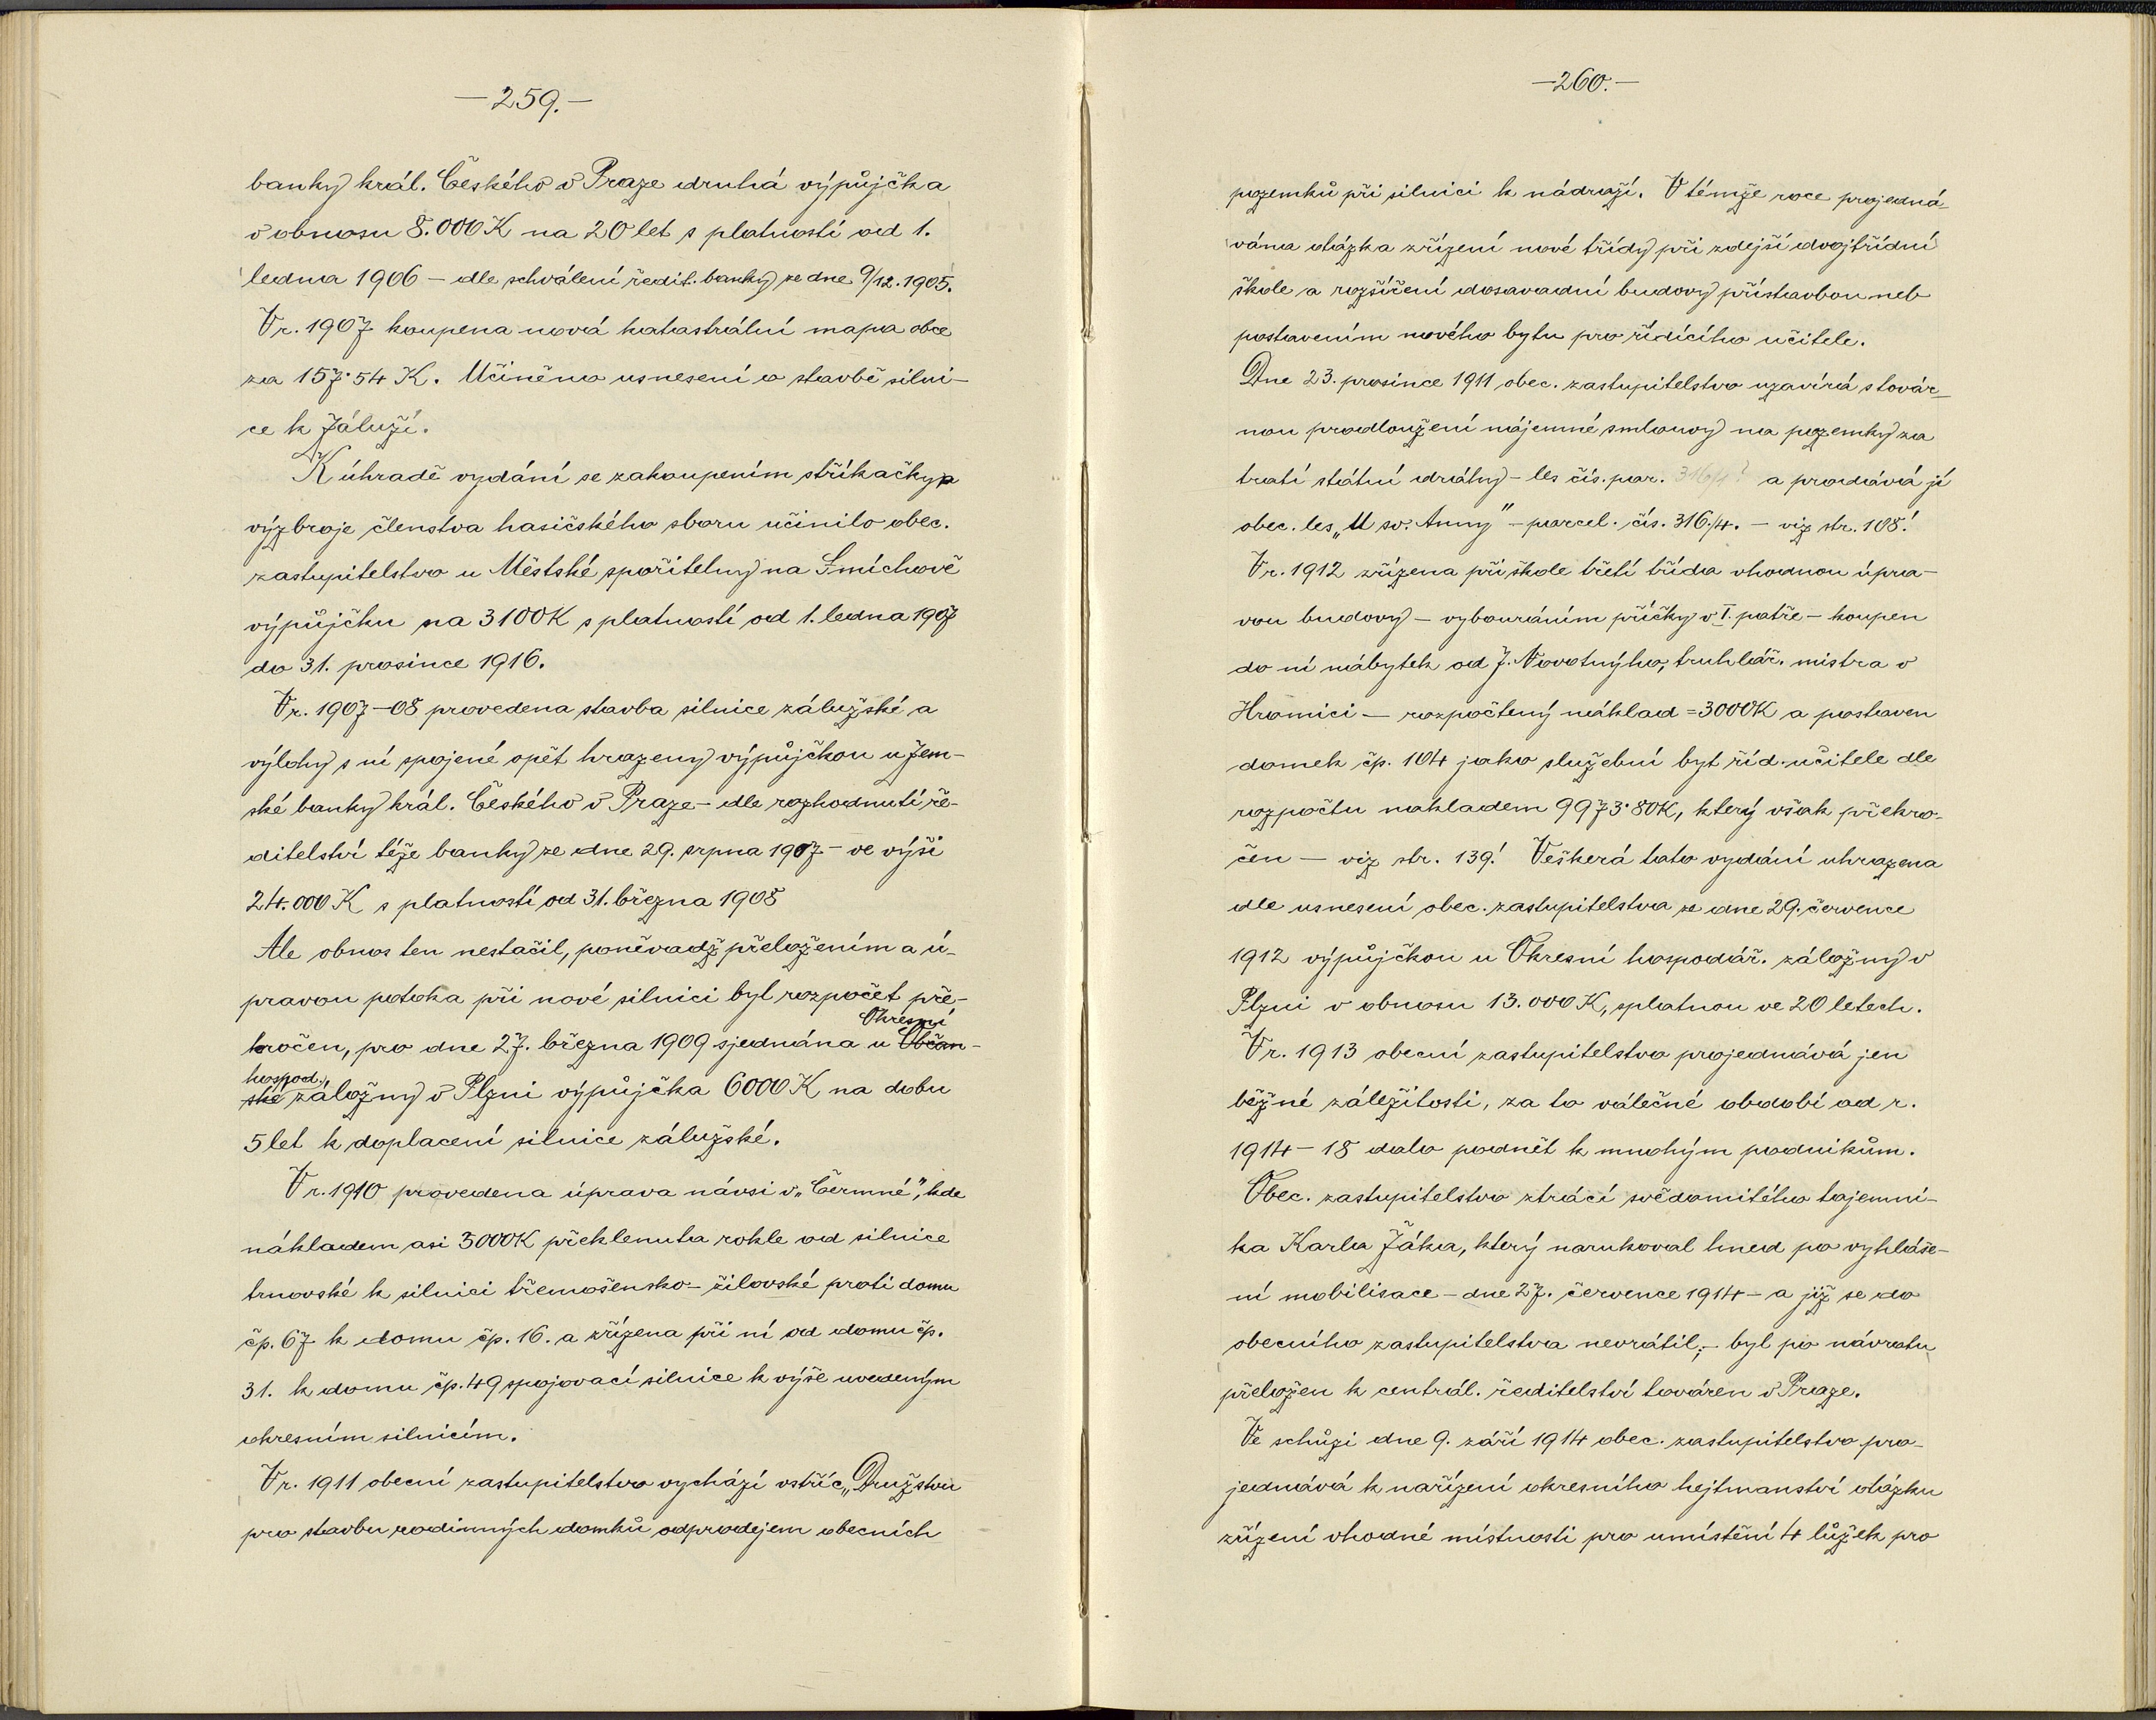 —259.—
banky král. Českého v Praze druhá výpůjčka
v obnosu 8.000 K na 20 let s platností od 1.
ledna 1906 — dle schválení ředit. banky ze dne 9/12. 1905.
V r. 1907 koupena nová katastrální mapa obce
za 157·54 K. Učiněno usnesení o stavbě silni-
ce k Záluží.
K úhradě vydání se zakoupením stříkačky a
výzbroje členstva hasičského sboru učinilo obec.
zastupitelstvo u Městské spořitelny na Smíchově
výpůjčku na 3100K s platností od 1. ledna 1907
do 31. prosince 1916.
V r. 1907—08 provedena stavba silnice zálužské a
výlohy s ní spojené opět hrazeny výpůjčkou u Zem-
ské banky král. Českého v Praze — dle rozhodnutí ře-
ditelství téže banky ze dne 29. srpna 1907 — ve výši
24.000 K s platností od 31. března 1908
Ale obnos ten nestačil, poněvadž přeložením a ú-
pravou potoka při nové silnici byl rozpočet pře-
Okresní
kročen, pro dne 27. března 1909 sjednána u Občan-
hospod.
ské záložny v Plzni výpůjčka 6000 K na dobu
5 let k doplacení silnice zálužské.
V r. 1910 provedena úprava návsi v „Čermné", kde
nákladem asi 3000K překlenuta rokle od silnice
trnovské k silnici třemošensko-žilovské proti domu
čp. 67 k domu čp. 16. a zřízena při ní od domu čp.
31. k domu čp. 49 spojovací silnice k výše uvedeným
okresním silnicím.
V r. 1911 obecní zastupitelstvo vychází vstříc „Družstvu
pro stavbu rodinných domků odprodejem obecních
—260.—
pozemků při silnici k nádraží. V témže roce projedná-
vána otázka zřízení nové třídy při zdejší dvojtřídní
škole a rozšíření dosavadní budovy přístavbou neb
postavením nového bytu pro řídícího učitele.
Dne 23. prosince 1911 obec. zastupitelstvo uzavírá s továr-
nou prodloužení nájemné smlouvy na pozemky za
tratí státní dráhy — les čís. par. 316/1? a prodává jí
obec. les „U sv. Anny" — parcel. čís. 316/4. — viz str. 108!
V r. 1912 zřízena při škole třetí třída vhodnou úpra-
vou budovy — vybouráním příčky v I. patře — koupen
do ní nábytek od J. Novotného, truhlář. mistra v
Hromici — rozpočtený náklad = 3000K a postaven
domek čp. 104 jako služební byt říd. učitele dle
rozpočtu nákladem 9973·80K, který však překro-
čen — viz str. 139! Veškerá tato vydání uhrazena
dle usnesení obec. zastupitelstva ze dne 29. července
1912 výpůjčkou u Okresní hospodář. záložny v
Plzni v obnosu 13.000 K, splatnou ve 20 letech.
V r. 1913 obecní zastupitelstvo projednává jen
běžné záležitosti, za to válečné období od r.
1914—18 dalo podnět k mnohým podnikům.
Obec. zastupitelstvo ztrácí svědomitého tajemní-
ka Karla Žáka, který narukoval hned po vyhláše-
ní mobilisace — dne 27. července 1914 — a již se do
obecního zastupitelstva nevrátil; — byl po návratu
přeložen k centrál. ředitelství továren v Praze.
Ve schůzi dne 9. září 1914 obec. zastupitelstvo pro-
jednává k nařízení okresního hejtmanství otázku
zřízení vhodné místnosti pro umístění 4 lůžek pro